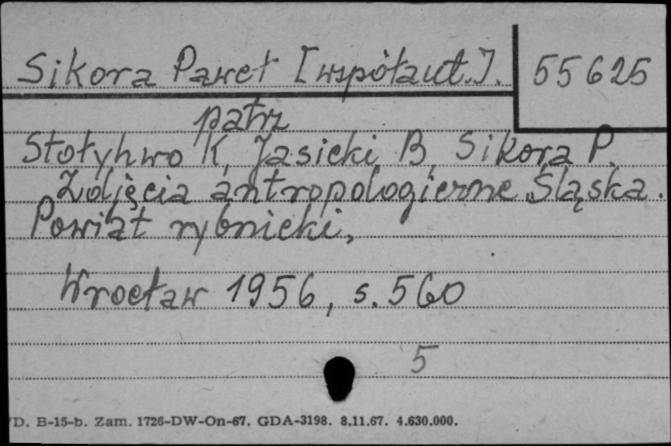 Sikora Paweł [współaut.]. 55625
patrz
Stołyhwo K, Jasicki B, Sikora P.
Zdjęcia antropologiczne Śląska.
Powiat rybnicki,
Wrocław 1956, s. 560
5
D. B-15-b. Zam. 1726-DW-On-67. GDA-3198. 8.11.67. 4.630.000.